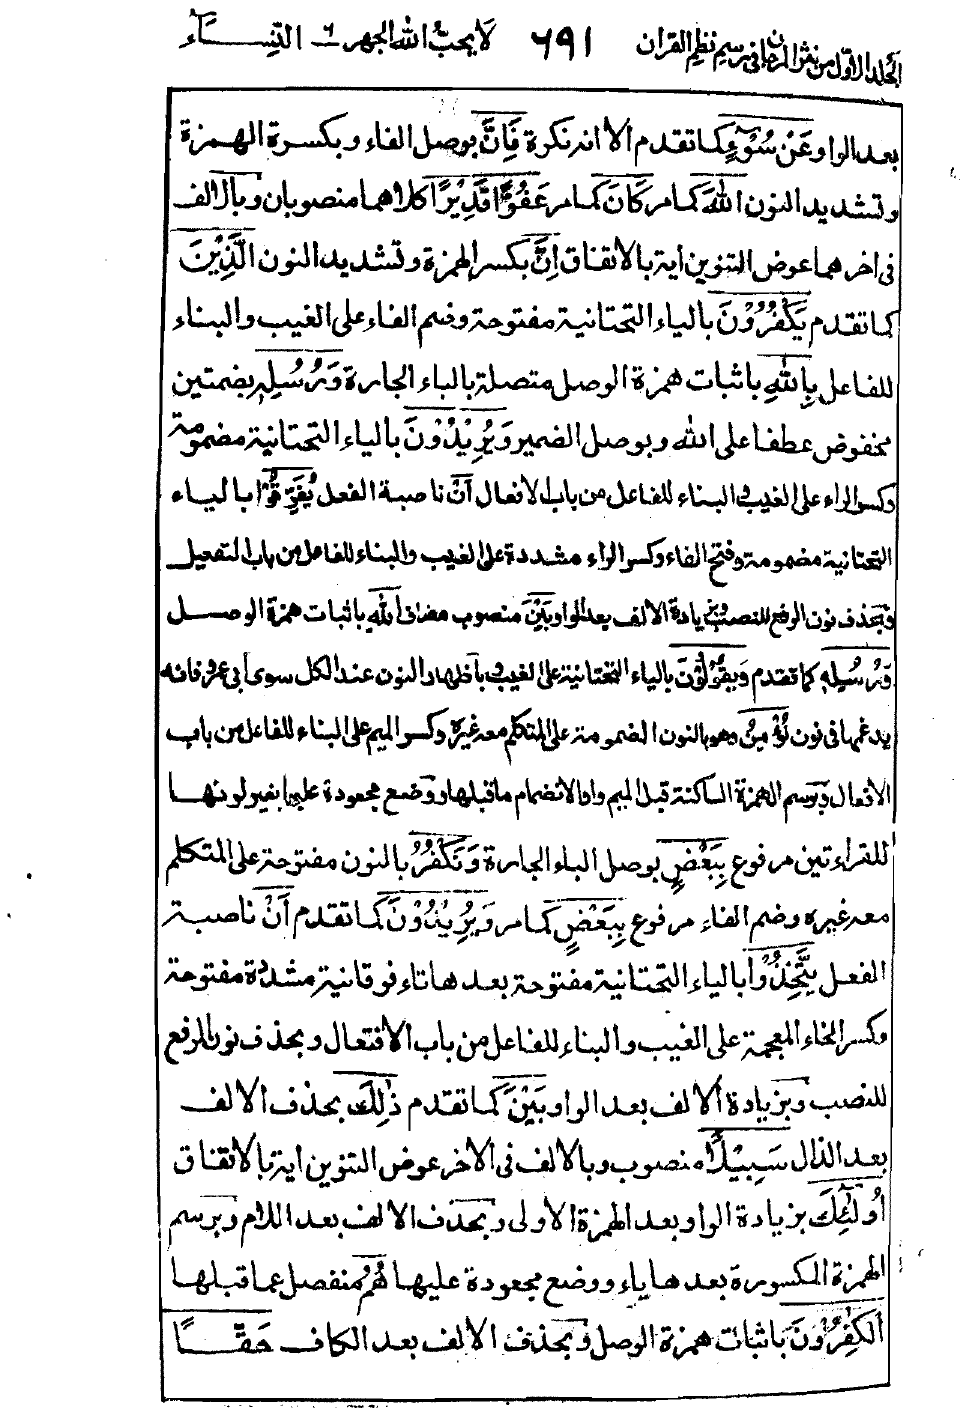 المجلد الاول من نثر المرجان فى رسم نظم القران ٦٩١ لا يحب الله الجهر ٦ النساء
بعد الواو عَنْ سُوْٓءٍ كما تقدم الا انه نكرة فَاِنَّ بوصل الفاء و بكسرة الهمزة
و تشديد النون اللهَ كما مر كَانَ كما مر عَفُوًّا قَدِيْرًا كلاهما منصوبان وبالالف
فى اخرهما عوض التنوين اية بالاتفاق اِنَّ بكسر الهمزة و تشديد النون الَّذِيْنَ
كما تقدم يَكْفُرُوْنَ بالياء التحتانية مفتوحة وضم الفاء على الغيب والبناء
للفاعل بِاللهِ باثبات همزة الوصل متصلة بالباء الجارة وَرُسُلِهٖ بضمتين
مخفوض عطفا على الله و بوصل الضمير وَيُرِيْدُوْنَ بالياء التحتانية مضمومة
وكسر الراء على الغيب و البناء للفاعل من باب الافعال اَنْ ناصبة الفعل يُفَرِّقُوْا بالياء
التحتانية مضمومة وفتح الفاء وكسر الراء مشددة على الغيب والبناء للفاعل من باب التفعيل
وبحذف نون الرفع للنصب وبزيادة الالف بعد الواو بَيْنَ منصوب مضاف اللهِ باثبات همزة الوصل
وَرُسُلِهٖ كما تقدم وَيَقُوْلُوْنَ بالياء التحتانية على الغيب باظهار النون عند الكل سوى ابى عمرو فانه
يدغمها فى نون نُؤْمِنُ وهو بالنون المضمومة على المتكلم معه غيره وكسر الميم على البناء للفاعل من باب
الافعال وبرسم الهمزة الساكنة قبل الميم واوا لانضمام ما قبلها ووضع مجعودة عليها بغير لونها
للقراءتين مرفوع بِبَعْضٍ بوصل الباء الجارة وَنَكْفُرُ بالنون مفتوحة على المتكلم
معه غيره وضم الفاء مرفوع بِبَعْضٍ كما مر وَيُرِيْدُوْنَ كما تقدم اَنْ ناصبة
الفعل يَتَّخِذُوْا بالياء التحتانية مفتوحة بعدها تاء فوقانية مشددة مفتوحة
وكسر الخاء المعجمة على الغيب والبناء للفاعل من باب الافتعال وبحذف نون الرفع
للنصب وبزيادة الالف بعد الواو بَيْنَ كما تقدم ذٰلِكَ بحذف الالف
بعد الذال سَبِيْلًا منصوب وبالالف فى الاخر عوض التنوين اية بالاتفاق
اُولٰٓئِكَ بزيادة الواو بعد الهمزة الاولى وبحذف الالف بعد اللام وبرسم
الهمزة المكسورة بعدها ياء ووضع مجعودة عليها هُمُ منفصل عما قبلها
الْكٰفِرُوْنَ باثبات همزة الوصل وبحذف الالف بعد الكاف حَقًّا